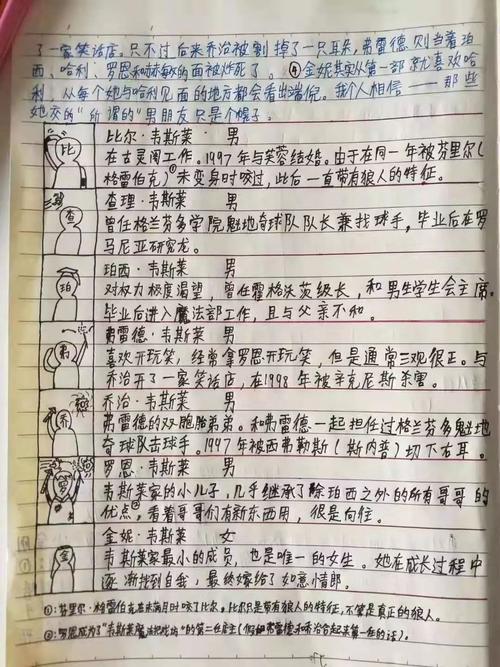 了一家笑话店。只不过后来乔治被割掉了一只耳朵,弗雷德则当着珀
西、哈利、罗恩和赫敏的面被炸死了。④金妮其实从第一部就喜欢哈
利,从每个她与哈利见面的地方都会看出端倪。我个人相信——那些
她交的“所谓的”男朋友只是个幌子。
比
比尔·韦斯莱 男
在古灵阁工作。1997年与芙蓉结婚。由于在同一年被芬里尔(
格雷伯克)①未变身时咬过,此后一直带有狼人的特征。
查
查理·韦斯莱 男
曾任格兰芬多学院魁地奇球队队长兼找球手,毕业后在罗
马尼亚研究龙。
珀
珀西·韦斯莱 男
对权力极度渴望,曾任霍格沃茨级长,和男生学生会主席。
毕业后进入魔法部工作,且与父亲不和。
弗
弗雷德·韦斯莱 男
喜欢开玩笑,经常拿罗恩开玩笑,但是通常三观很正。与
乔治开了一家笑话店,在1998年被辛克尼斯杀害。
乔
乔治·韦斯莱 男
弗雷德的双胞胎弟弟。和弗雷德一起担任过格兰芬多魁地
奇球队击球手。1997年被西弗勒斯(斯内普)切下右耳。
罗恩·韦斯莱 男
韦斯莱家的小儿子,几乎继承了除珀西之外的所有哥哥的
优点②,看着哥哥们有新东西用,很是向往。
金
金妮·韦斯莱 女
韦斯莱家最小的成员,也是唯一的女生。她在成长过程中
逐渐找到自我,最终嫁给了如意情郎。
①:芬里尔·格雷伯克在未满月时咬了比尔,比尔只是带有狼人的特征,不算是真正的狼人。
②:罗恩成为了“韦斯莱魔法把戏坊”的第二任店主(假如弗雷德和乔治合起来算第一任的话)。